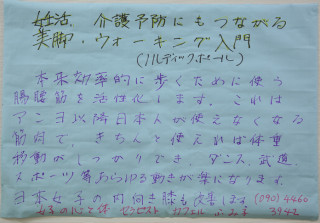 妊活、介護予防にもつながる
美脚・ウォーキング入門
(ノルディックポール)
本来効率的に歩くために使う
腸腰筋を活性化します。これは
アニヨ以降日本人が使えなくなる
筋肉で、きちんと使えれば体重
移動がしっかりでき、ダンス、武道、
スポーツ等あらゆる動きが楽になります
日本女子の内向き膝も改善します。(090)4460
女子の心と体 センセスト カフェル 3942